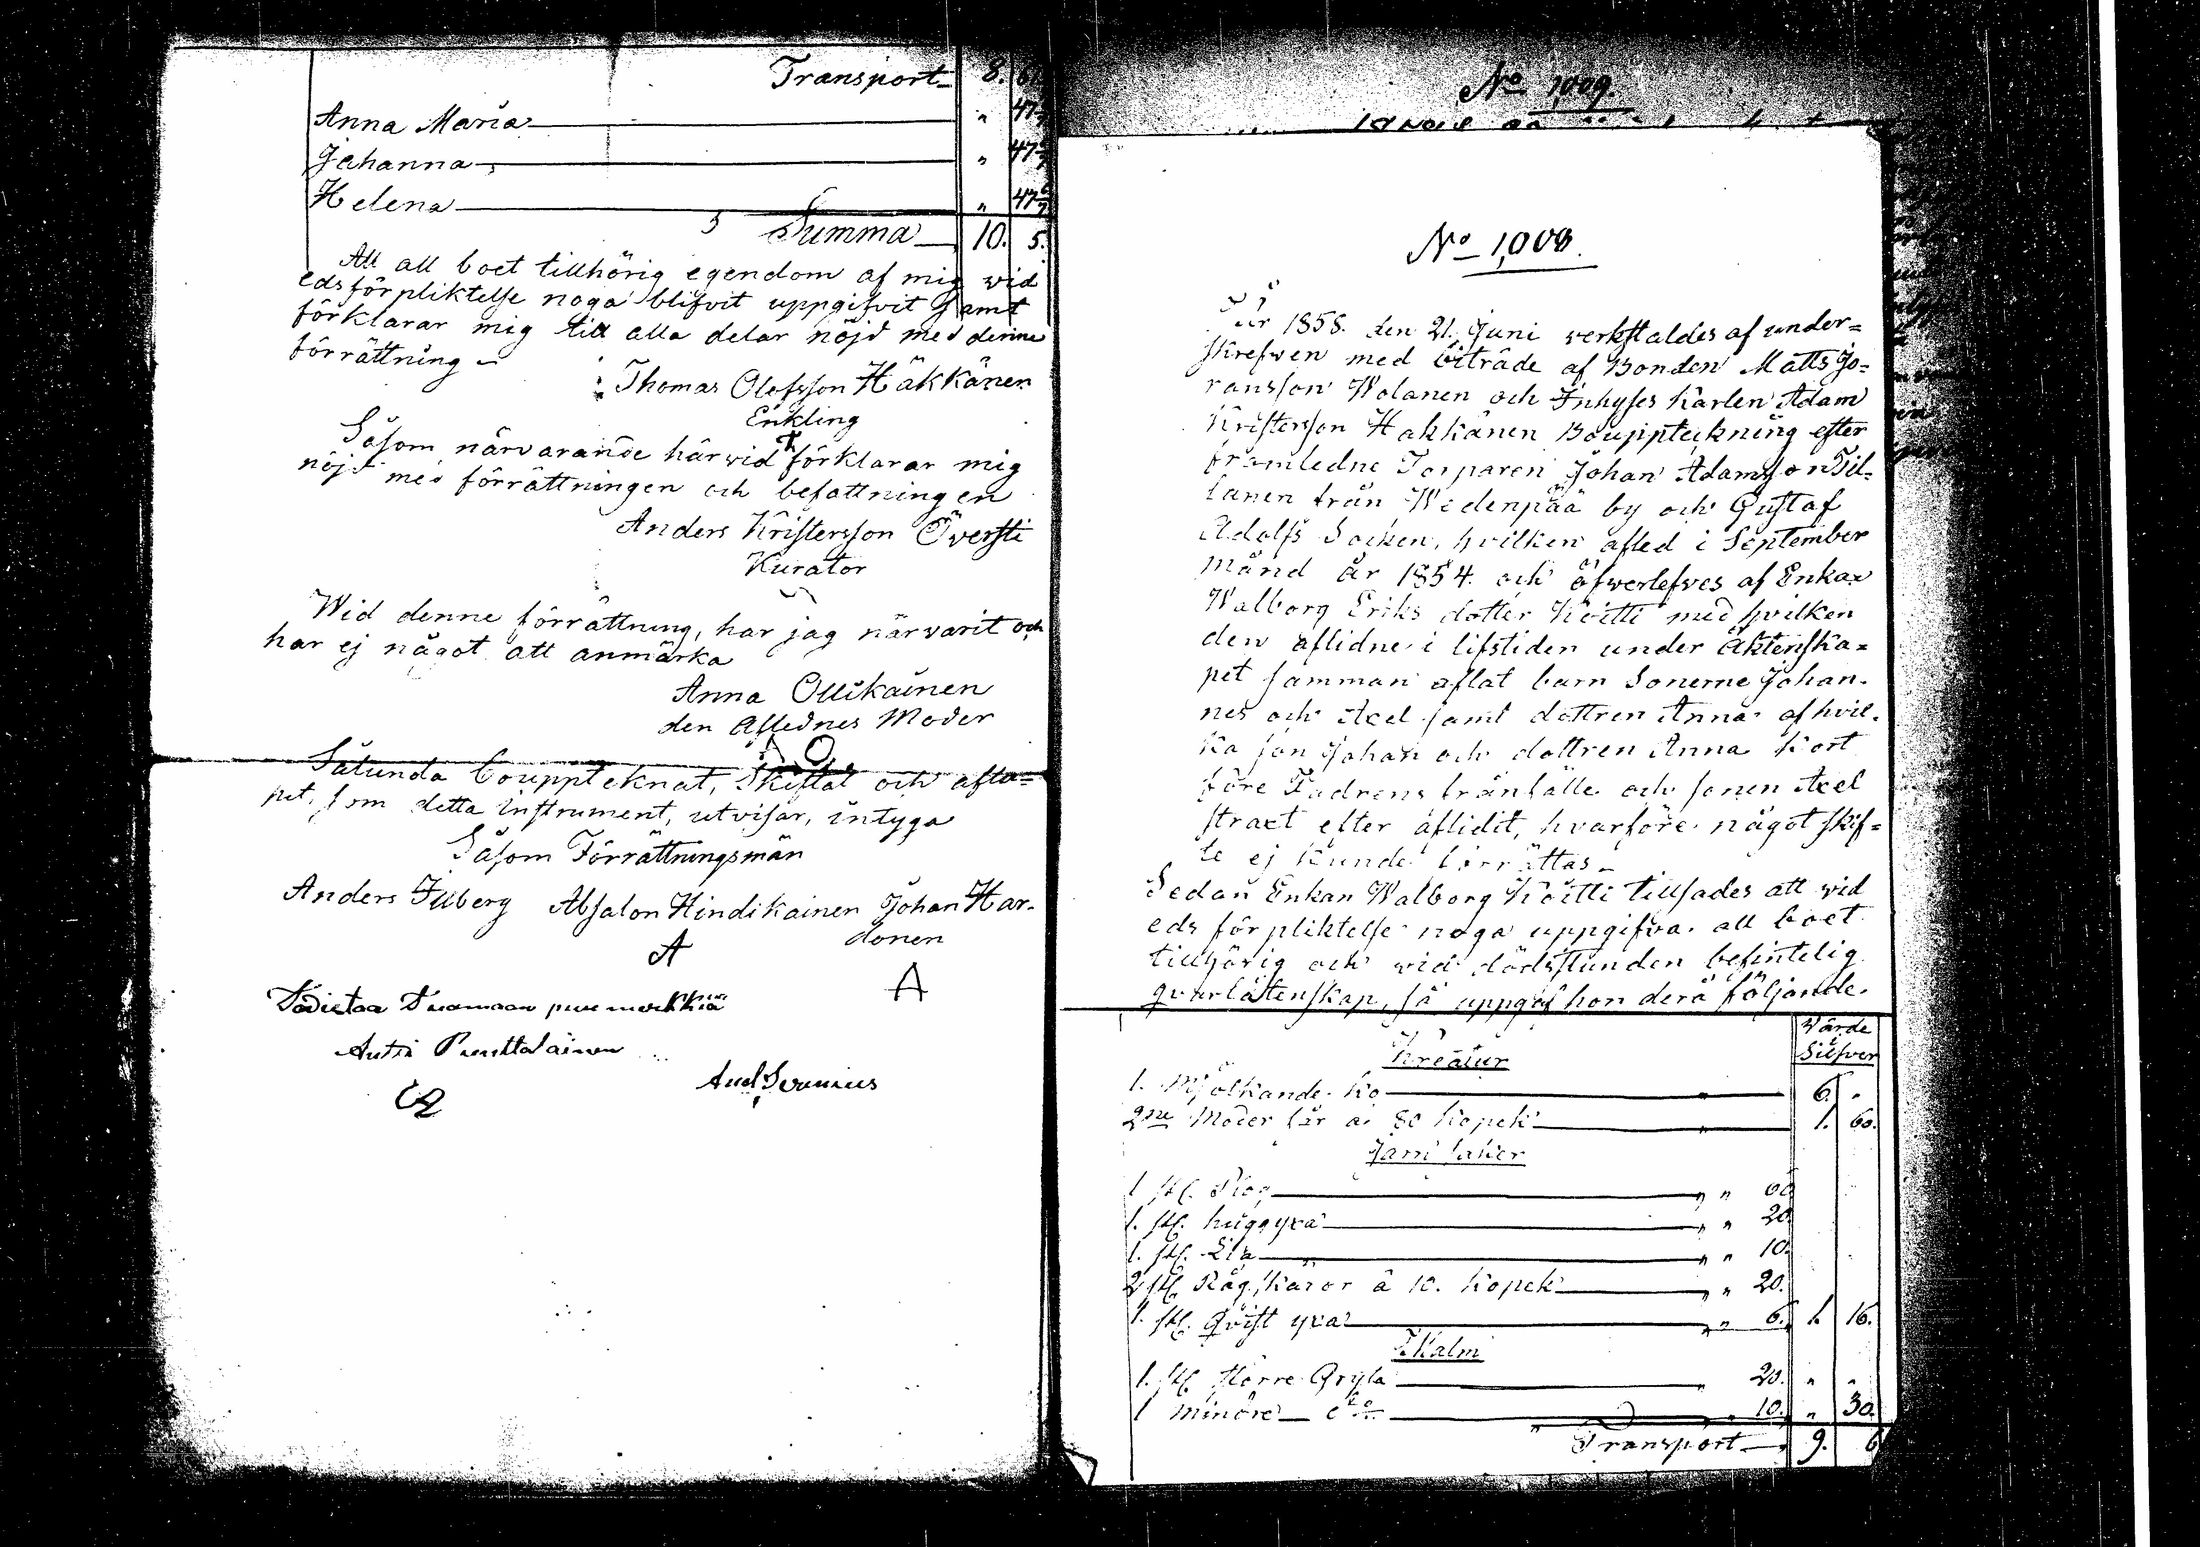 Transport 8. 61
Anna Maria „ 47
Johanna „ 47
Helena „ 47
Summa 10. 5.
Att all boet tillhörig egendom af mig wid
edsförpliktelse noga blifvit uppgifvit samt
förklarar mig till alla delar nöjd med denne
förrättning
Thomas Olofsson Häkkänen
Enkling
Såsom närvarande härwid förklarar mig
nöjd med förrättningen och befattningen
Anders Kristersson Översti
Kurator
Wid denne förrättning, har jag närvarit och
har ej något att anmärka
Anna Ollikainen
den Aflednes Moder
Sålunda bouppteknat, Skiftat och aflu=
pit, som detta instrument, utvisar, intyga
Såsom Förrättningsmän
Anders Illberg Absalon Hindikainen Johan Har-
donen
A A
Todistaa Tuomaan puumerkkiä
Antti Punttalainen
And Serenius
No 1,009.
No 1,008.
År 1858. den 21. Juni werkstäldes af under=
skrefwen med biträde af Bonden Matts Jo=
ransson Wolanen och Inhyses Karlen Adam
Kristersson Hakkänen Bouppteckning efter
framledne Torparen Johan Adamsson Til=
lanen från Wedenpää by och Gustaf
Adolfs Socken, hvilken afled i September
månd år 1854. och öfwerlefves af Enkan
Walborg Eriks dotter Köitti med hvilken
den aflidne i lifstiden under Äktenska=
pet samman aflat barn Sonerne Johan-
nes och Axel samt dottren Anna af hvil-
ka son Johan och dottren Anna kort
före Fadrens frånfälle och sonen Axel
straxt efter aflidit, hvarföre något skif=
te ej kunde förrättas
Sedan Enkan Walborg Köitti tillsades att wid
eds förpliktelse noga uppgifva all boet
tillhörig och wid dödsstunden befintelig
qvarlåtenskap, så uppgaf hon derå följande.
Värde
Silfver
Kreatur
1. Mjölkande Ko „ 6. „
2ne Moder får a 80 kopek „ 1. 60.
Jarn saker
1 st. Plog „ „ 60
1. st. huggyxa „ „ 20
1. st. Lia „ „ 10.
2 st. Råg skäror â 10. kopek „ „ 20.
1. st. Qvist yxa „ „ 6. 1. 16.
1. st. större Gryta „ 20. „ „
1 mindre dto „ 10. „ 30.
Transport 9. 6